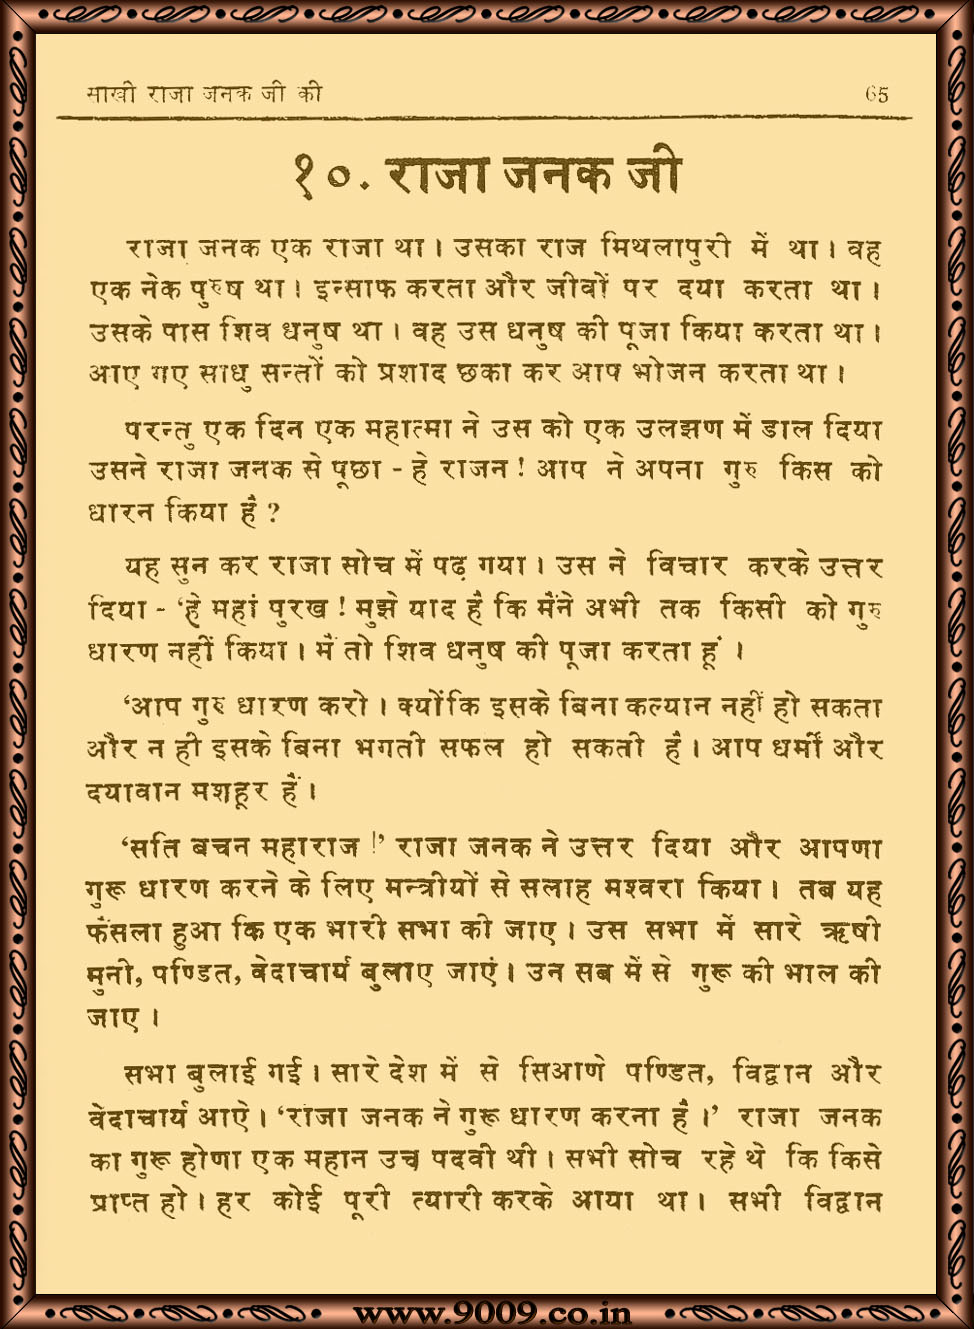 साखी राजा जनक जी की 65
१०. राजा जनक जी
राजा जनक एक राजा था। उसका राज मिथलापुरी में था। वह
एक नेक पुरुष था। इन्साफ करता और जीवों पर दया करता था।
उसके पास शिव धनुष था। वह उस धनुष की पूजा किया करता था।
आए गए साधु सन्तों को प्रशाद छका कर आप भोजन करता था।
परन्तु एक दिन एक महात्मा ने उस को एक उलझण में डाल दिया
उसने राजा जनक से पूछा - हे राजन! आप ने अपना गुरु किस को
धारन किया है?
यह सुन कर राजा सोच में पढ़ गया। उस ने विचार करके उत्तर
दिया - ‘हे महां पुरख! मुझे याद है कि मैंने अभी तक किसी को गुरु
धारण नहीं किया। मैं तो शिव धनुष की पूजा करता हूं।
‘आप गुरु धारण करो। क्योंकि इसके बिना कल्यान नहीं हो सकता
और न ही इसके बिना भगती सफल हो सकती है। आप धर्मी और
दयावान मशहूर हैं।
‘सति बचन महाराज!’ राजा जनक ने उत्तर दिया और आपणा
गुरू धारण करने के लिए मन्त्रीयों से सलाह मश्वरा किया। तब यह
फैसला हुआ कि एक भारी सभा की जाए। उस सभा में सारे ऋषी
मुनी, पण्डित, वेदाचार्य बुलाए जाएं। उन सब में से गुरू की भाल की
जाए।
सभा बुलाई गई। सारे देश में से सिआणे पण्डित, विद्वान और
वेदाचार्य आऐ। ‘राजा जनक ने गुरू धारण करना है।’ राजा जनक
का गुरू होणा एक महान उच पदवी थी। सभी सोच रहे थे कि किसे
प्राप्त हो। हर कोई पूरी त्यारी करके आया था। सभी विद्वान
www.9009.co.in